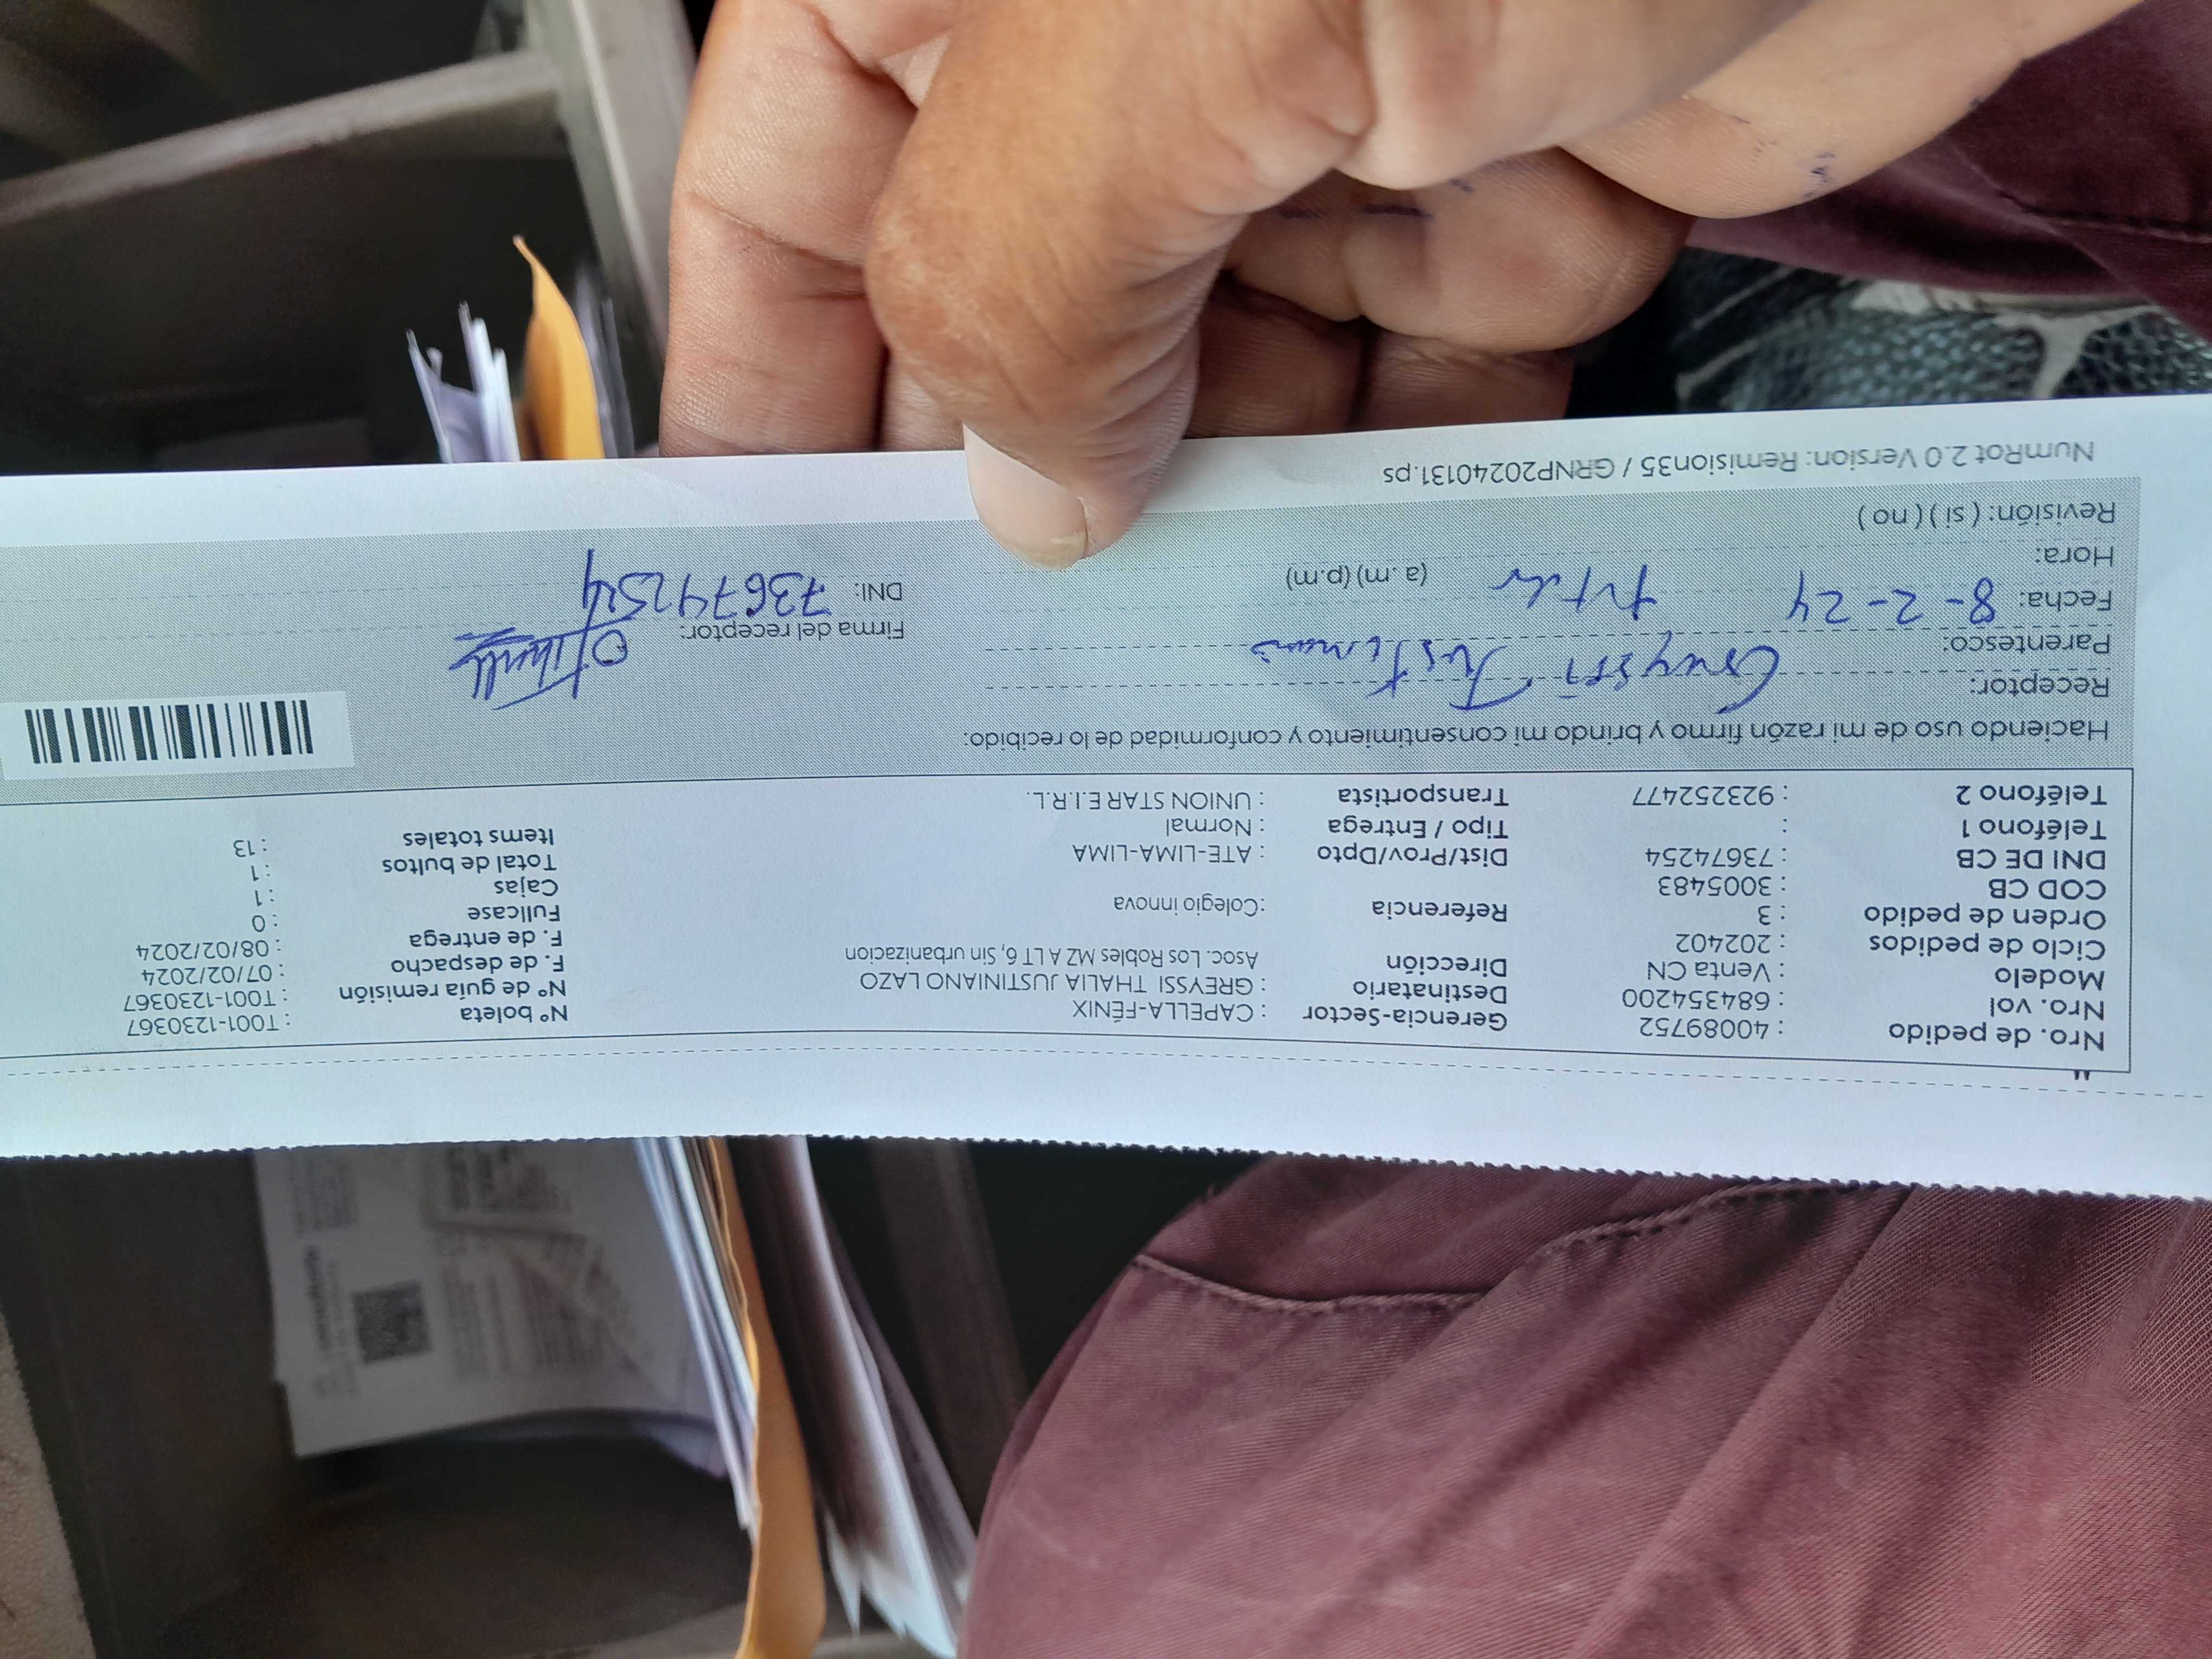 Nro. de pedido : 40089752 Gerencia-Sector : CAPELLA-FÉNIX N° boleta : T001-1230367
Nro. vol : 684354200 Destinatario : GREYSSI THALIA JUSTINIANO LAZO N° de guía remisión : T001-1230367
Modelo : Venta CN Dirección Asoc. Los Robles MZ A LT 6, Sin urbanizacion F. de despacho : 07/02/2024
Ciclo de pedidos : 202402 F. de entrega : 08/02/2024
Orden de pedido : 3 Referencia :Colegio innova Fullcase : 0
COD CB : 3005483 Cajas : 1
DNI DE CB : 73674254 Dist/Prov/Dpto : ATE-LIMA-LIMA Total de bultos : 1
Teléfono 1 : Tipo / Entrega : Normal Items totales : 13
Teléfono 2 : 923252477 Transportista : UNION STAR E.I.R.L.
Haciendo uso de mi razón firmo y brindo mi consentimiento y conformidad de lo recibido:
Receptor: Greyssi
Parentesco: Firma del receptor:
Fecha: 8-2-24
Hora: (a.m) (p.m) DNI: 73674254
Revisión: ( si ) ( no )
NumRot 2.0 Version: Remision35 / GRNP20240131.ps